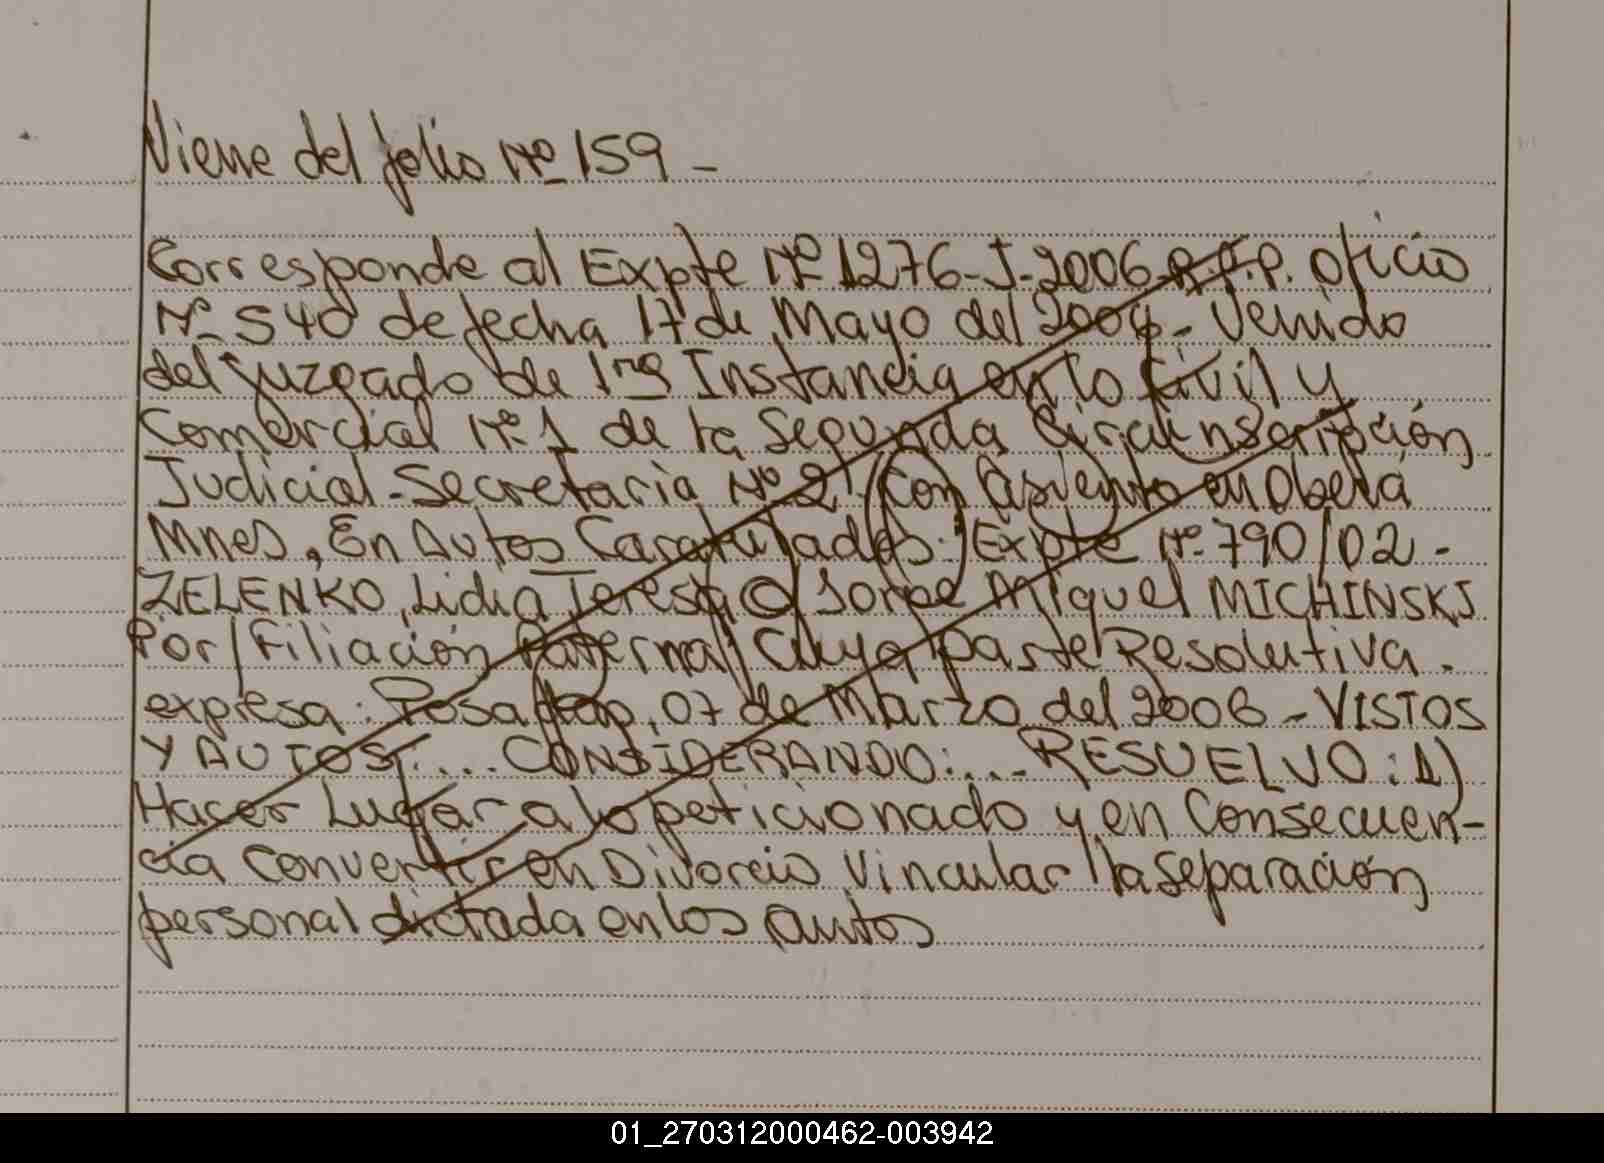 Viene del folio Nº 159 -
Corresponde al Expte Nº 1276-J-2006-R.P.P. oficio
Nº 540 de fecha 17 de Mayo del 2004. Venido
del juzgado de 1ra Instancia en lo Civil y
Comercial Nº 1 de la Segunda Circunscripción
Judicial-Secretaria Nº 2 Con Asiento en Oberá
Mnes, En Autos Caratulados: Expte Nº 790/02 -
ZELENKO, Lidia Teresa C/ Jorge Miguel MICHINSKI
Por/Filiación Paternal Cuya parte Resolutiva.
expresa: Posadas, 07 de Marzo del 2006 - VISTOS
Y AUTOS:... CONSIDERANDO:... RESUELVO: 1)
Hacer Lugar a lo peticionado y en Consecuen-
cia Convertir en Divorcio Vincular la separación
personal dictada en los autos
01_270312000462-003942